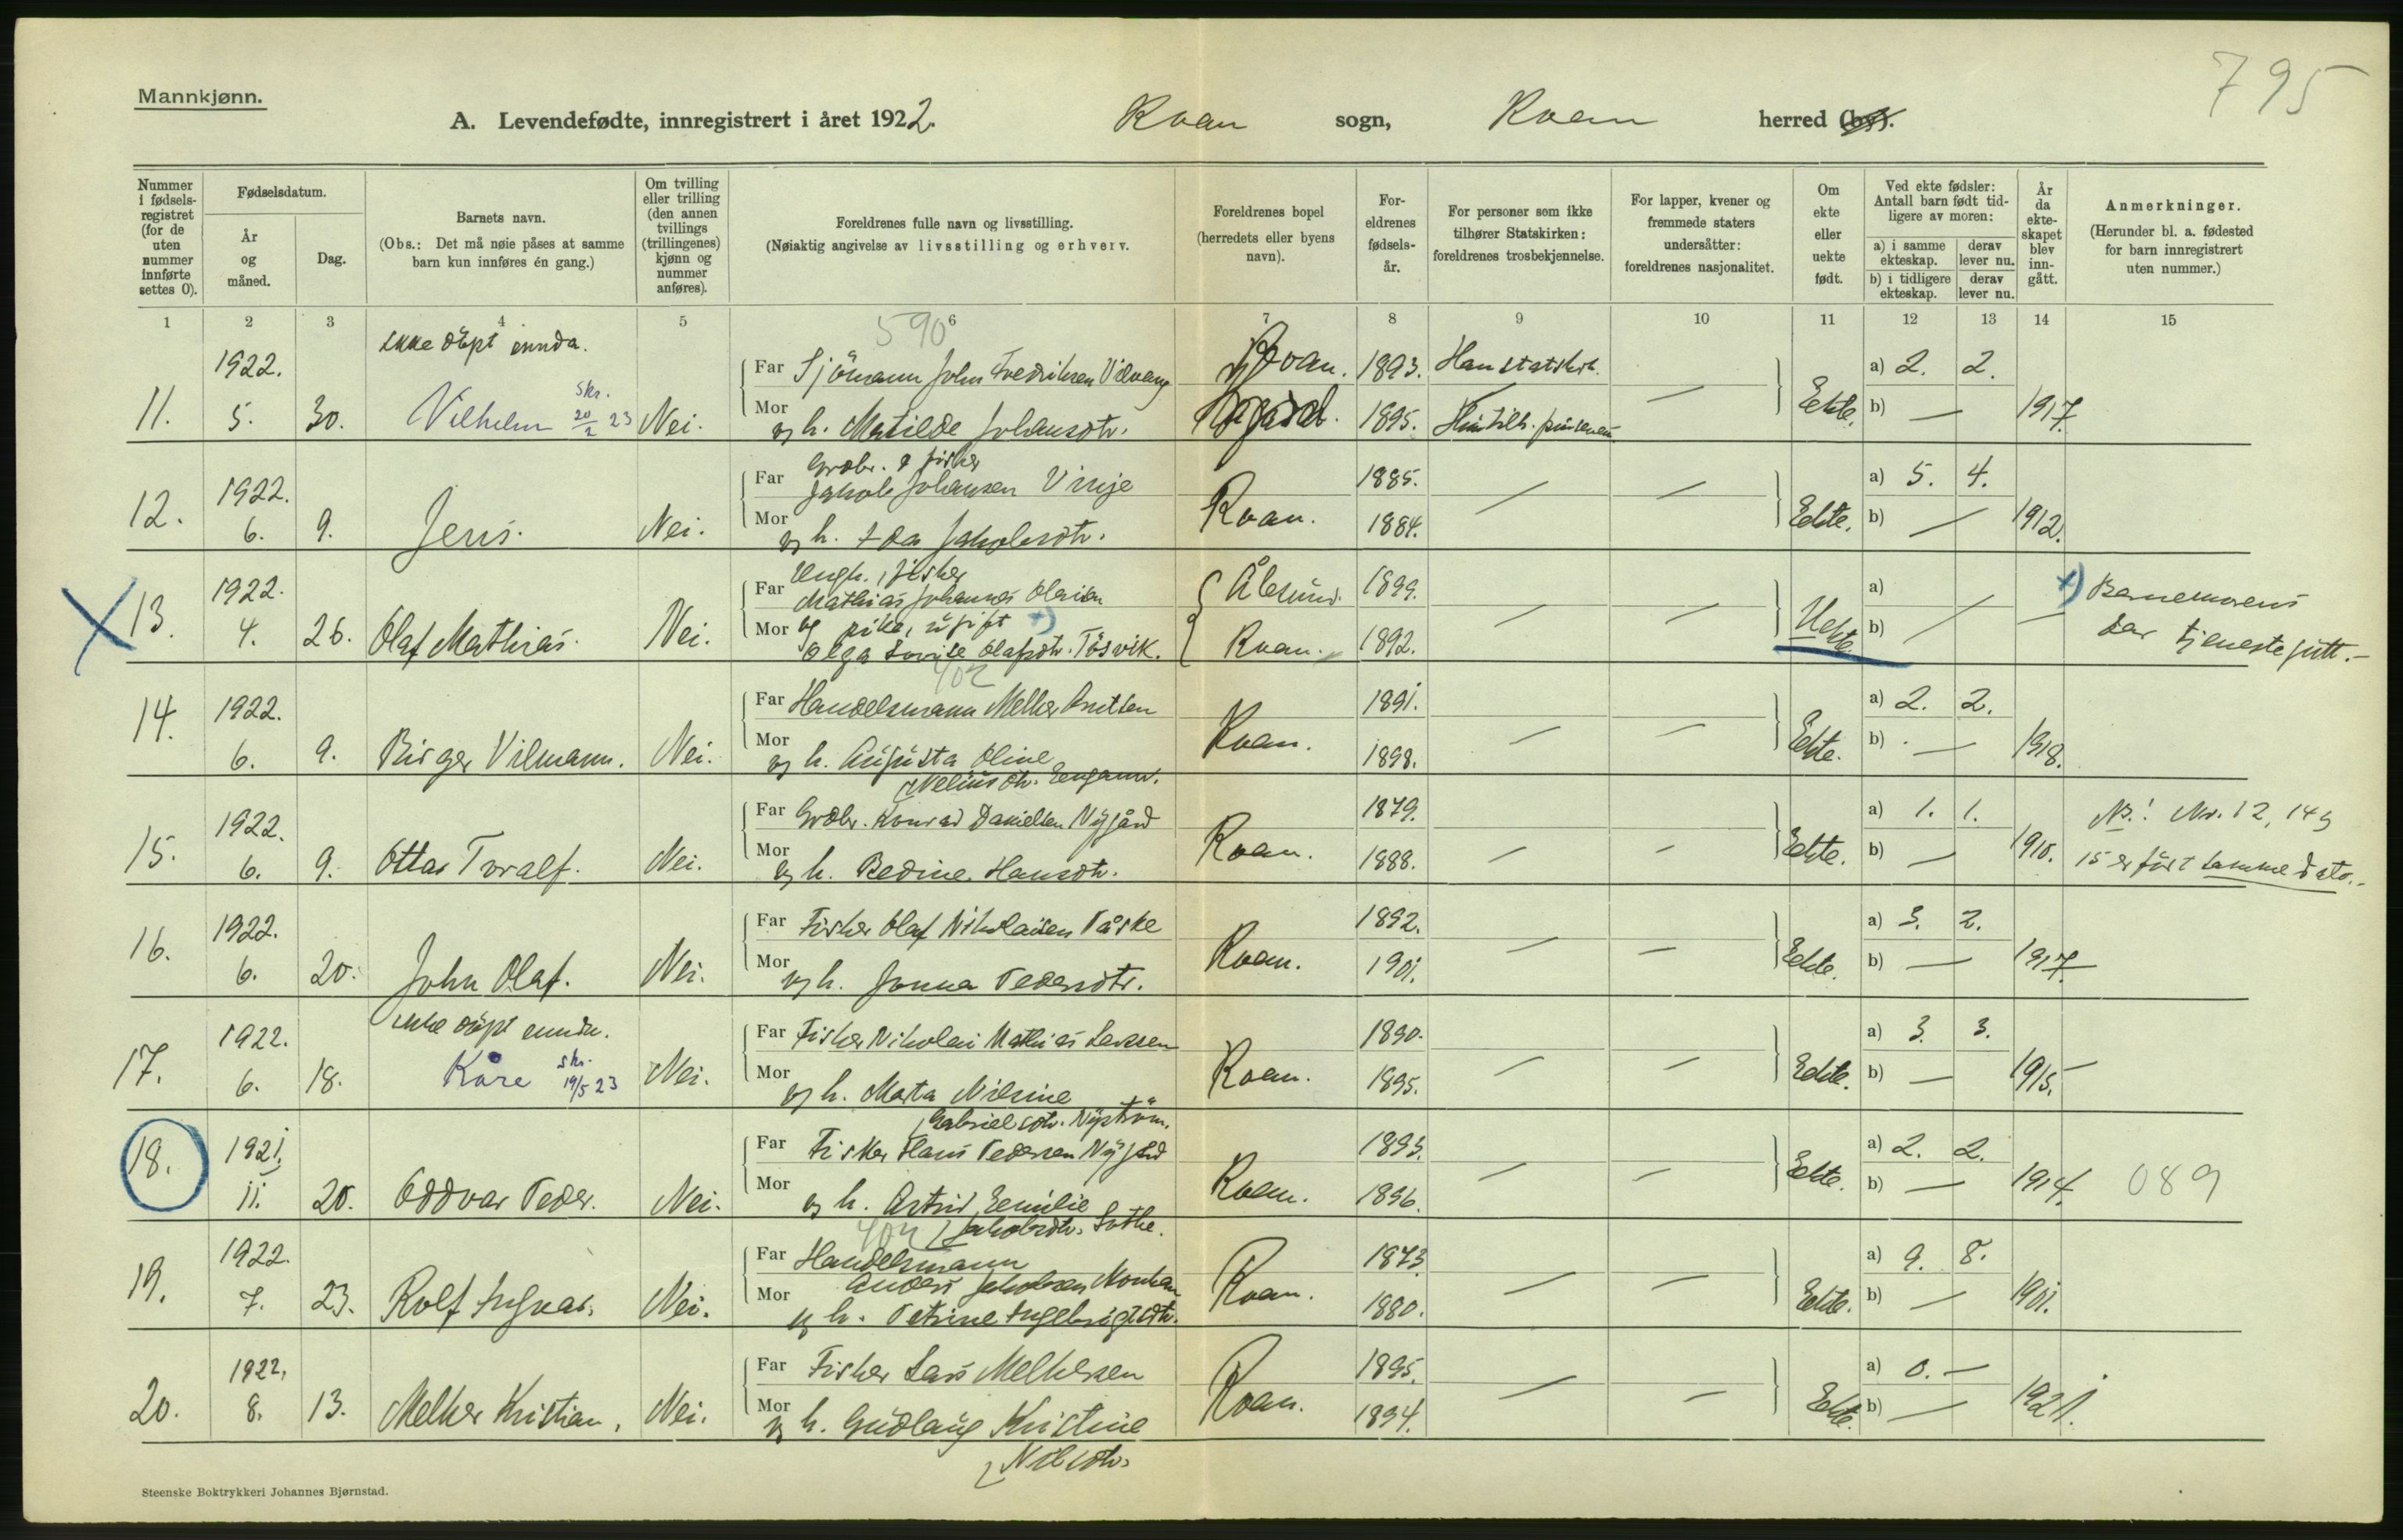 795
Mannkjønn.
A. Levendefødte, innregistrert i året 1922. Roan sogn, Roan herred (by).
Nummer i fødselsregistret (for de uten nummer innførte settes 0).
Fødselsdatum.
År og måned.
Dag.
Barnets navn.
(Obs.: Det må nøie påses at samme barn kun innføres én gang.)
Om tvilling eller trilling (den annen tvillings (trillingenes) kjønn og nummer anføres).
Foreldrenes fulle navn og livsstilling.
(Nøiaktig angivelse av livsstilling og erhverv.
Foreldrenes bopel (herredets eller byens navn).
Foreldrenes fødselsår.
For personer som ikke tilhører Statskirken: foreldrenes trosbekjennelse.
For lapper, kvener og fremmede staters undersåtter: foreldrenes nasjonalitet.
Om ekte eller uekte født.
Ved ekte fødsler: Antall barn født tidligere av moren:
a) i samme ekteskap. derav lever nu.
b) i tidligere ekteskap. derav lever nu.
År da ekteskapet blev inngått.
Anmerkninger.
(Herunder bl. a. fødested for barn innregistrert uten nummer.)
1 2 3 4 5 6 7 8 9 10 11 12 13 14 15
590
ikke døpt ennda.
1922. Far Sjömann John Fredriksen Roan. 1893. Han statskirk. a) 2. 2.
skr.
11. 5. 30. Vilhelm 20/2 23 Nei. Mor og h. Matilde Johansdtr. 1895. — Ekte. b) — 1917.
Grdbr. & fisker
1922. Far Jakob Johansen Vinje 1885. a) 5. 4.
12. 6. 9. Jens. Nei. Mor og h. Ida Jakobsdtr. Roan. 1884. — — Ekte. b) — 1912.
Ungk., fisker
1922. Far Mathias Johannes Olaisen Ålesund. 1899. a) +) Barnemorens
13. 4. 26. Olaf Mathias. Nei. Mor og pike, ugift +) — — Uekte. b) — — far tjenestegutt.—
Olga Lovise Olafsdtr. Tösvik. Roan. 1892.
402
14. 1922. Far Handelsmann Melker Knutsen 1891. a) 2. 2.
6. 9. Birger Vilmann. Nei. Mor og h. Augusta Oline Roan. 1898. — — Ekte. b) — 1918.
Neliusdtr.
1922. Far Grdbr. Konrad Danielsen Nygård 1879. a) 1. 1. NB.! Nr. 12, 14 &
15. 6. 9. Ottar Toralf. Nei. Mor og h. Bedine Hansdtr. Roan. 1888. — — Ekte. b) — 1910. 15 er født samme dato.—
1922. Far Fisker Olaf Nikolaisen 1892. a) 3. 2.
16. 6. 20. John Olaf. Nei. Mor og h. Jonna Pedersdtr. Roan. 1901. — — Ekte. b) — 1917.
ikke døpt ennda.
1922. Far Fisker Nikolai Mathias Larssen 1890. a) 3. 3.
skr.
17. 6. 18. Kåre 19/5 23 Nei. Mor og h. Marta Nilsine Roan. 1895. — — Ekte. b) — 1915.
Gabrielsdtr. Nyström.
1921. Far Fisker Hans Pedersen Nygård 1893. a) 2. 2.
18. 11. 20. Oddvar Peder. Nei. Mor og h. Astrid Emilie Roan. 1896. — — Ekte. b) — 1914. 089
402 Jakobsdtr.
1922. Far Handelsmann 1873 a) 9. 8.
19. 7. 23. Rolf Ingvar. Nei. Mor Anders Jakobsen Roan. — — Ekte. b) — 1901.
og h. Petrine Ingebrigtsdtr. 1880.
1922. Far Fisker Lars Melkersen 1895. a) 0. —
20. 8. 13. Melker Kristian. Nei. Mor og h. Gudlaug Kristine Roan. 1894. — — Ekte. b) — 1921.
Nilsdtr.
Steenske Boktrykkeri Johannes Bjørnstad.